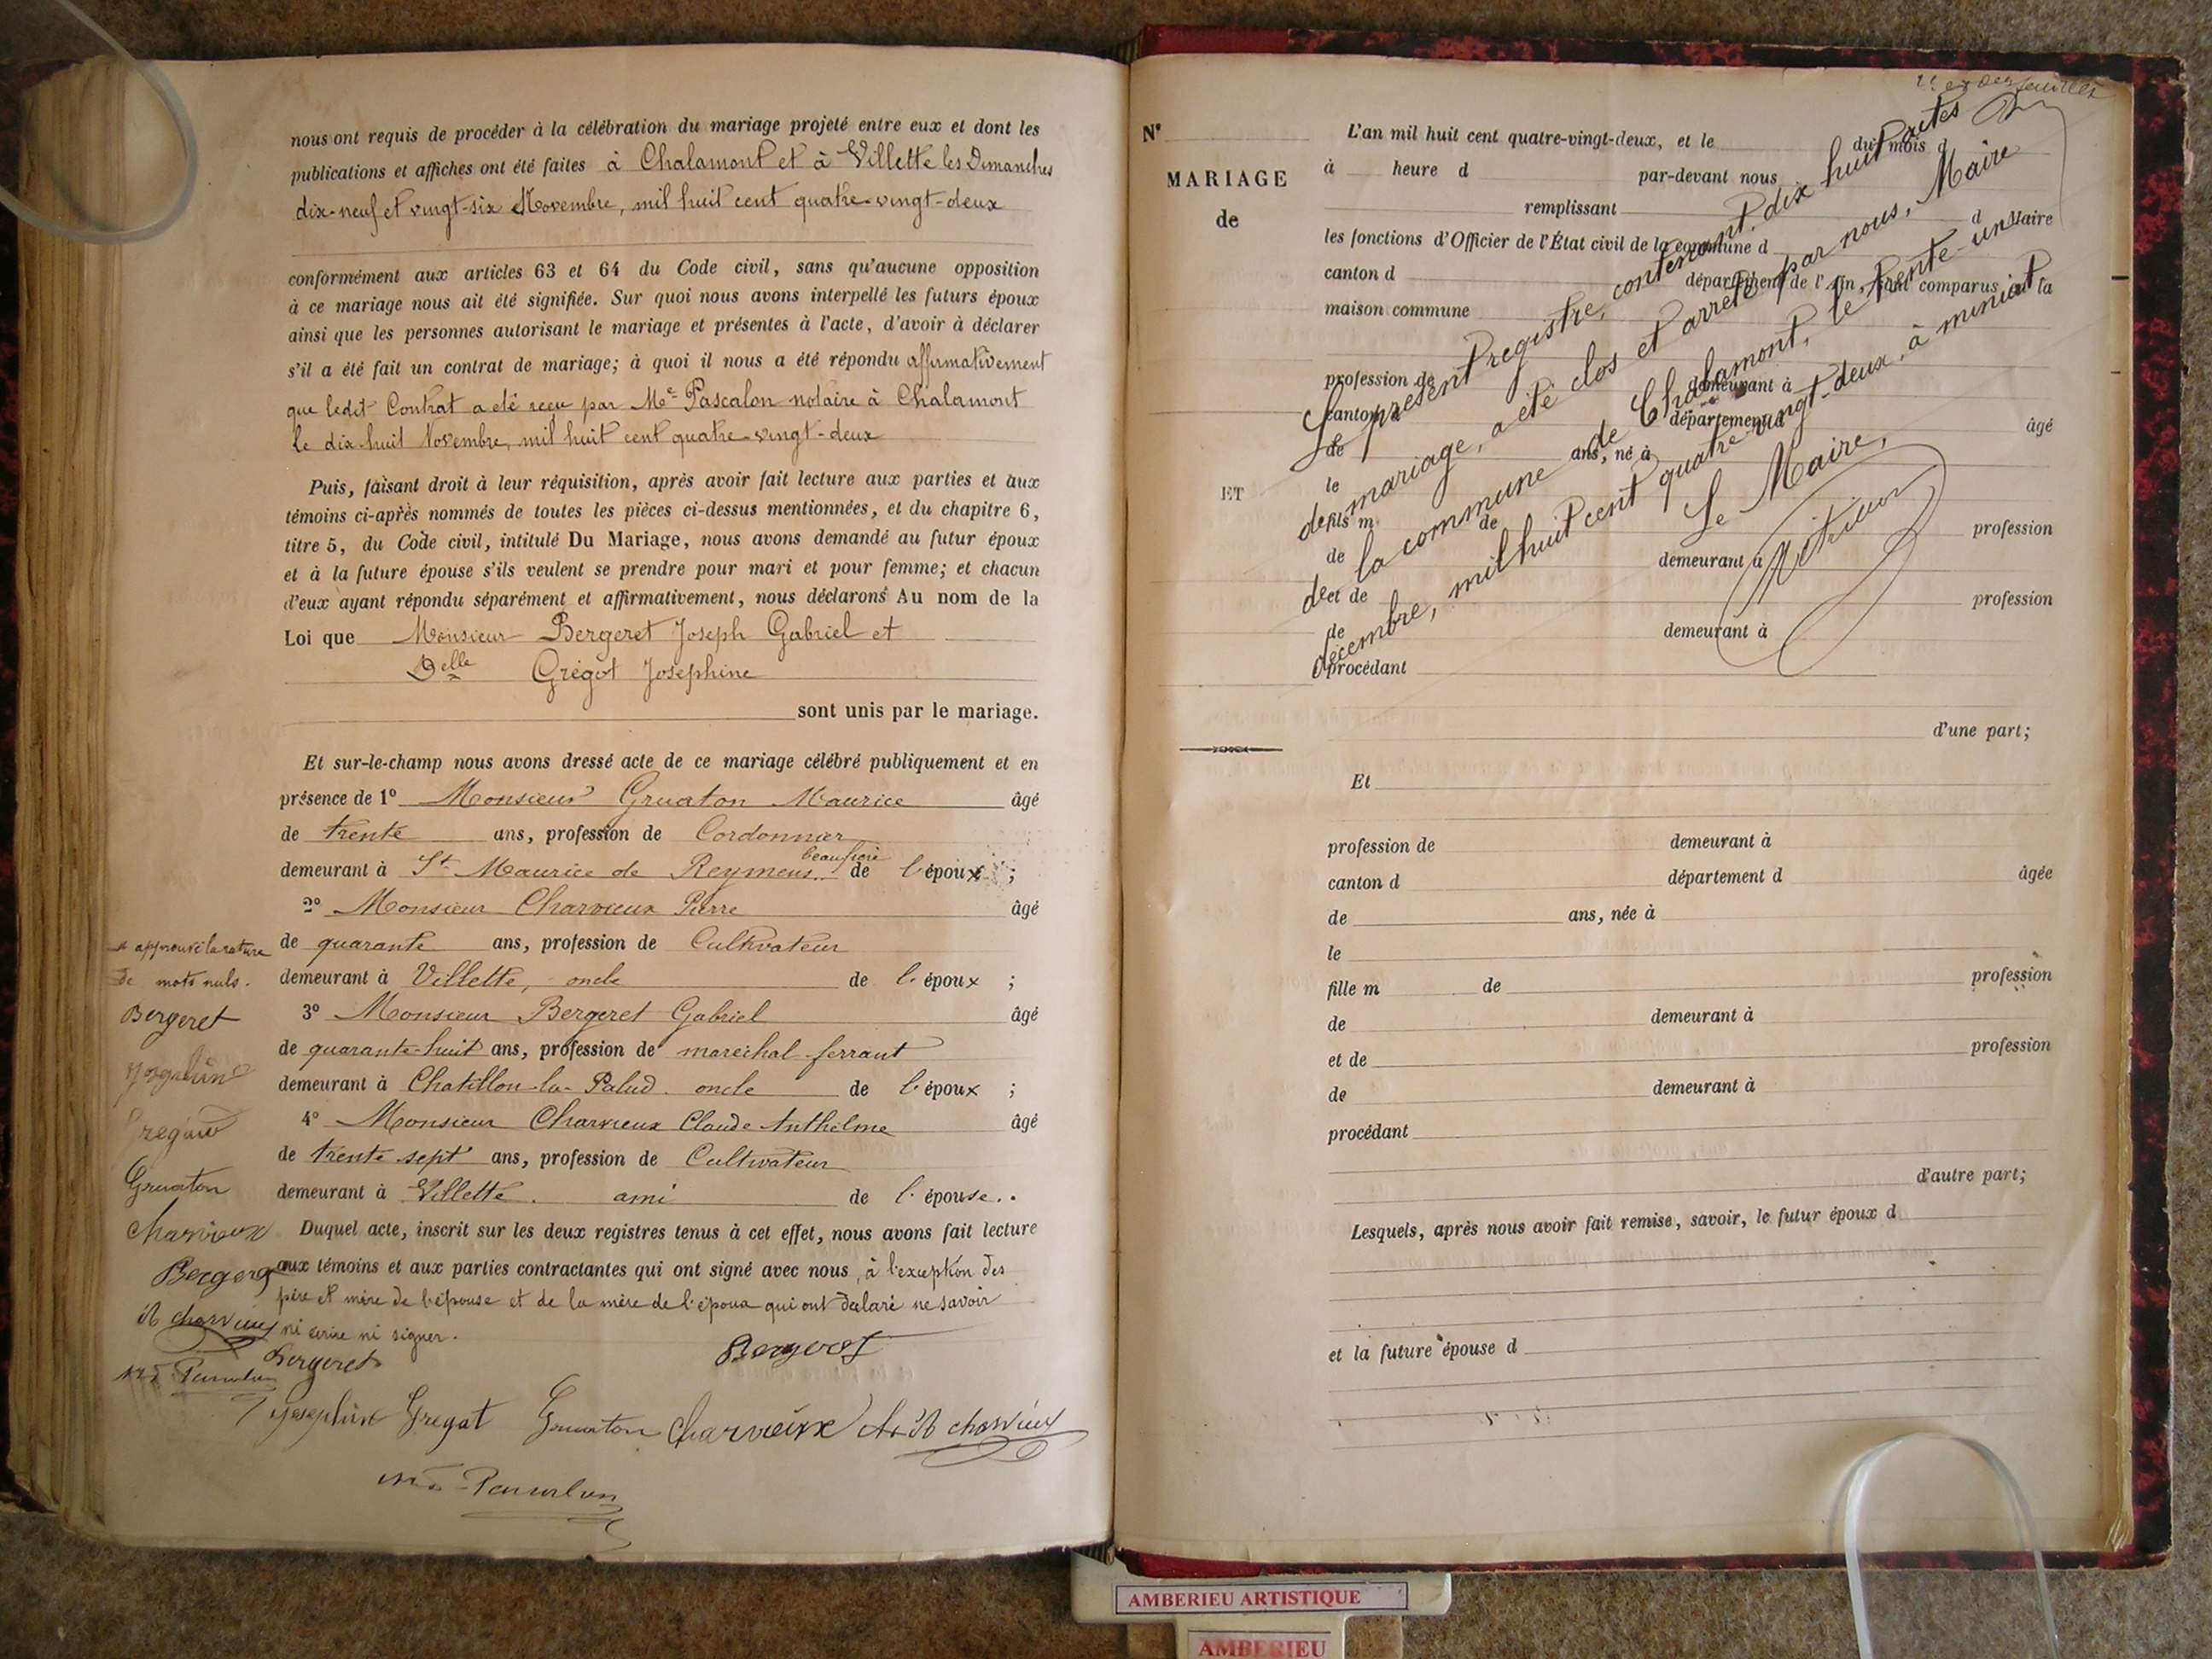 nous ont requis de procéder à la célébration du mariage projeté entre eux et dont les
publications et affiches ont été faites à Chalamont et à Villette les Dimanches
dix-neuf et vingt-six Novembre, mil huit cent quatre-vingt-deux
conformément aux articles 63 et 64 du Code civil, sans qu'aucune opposition
à ce mariage nous ait été signifiée. Sur quoi nous avons interpellé les futurs époux
ainsi que les personnes autorisant le mariage et présentes à l'acte, d'avoir à déclarer
s'il a été fait un contrat de mariage; à quoi il nous a été répondu affirmativement
que ledit Contrat a été reçu par Me Pascalon notaire à Chalamont
le dix-huit Novembre, mil huit cent quatre-vingt-deux
Puis, faisant droit à leur réquisition, après avoir fait lecture aux parties et aux
témoins ci-après nommés de toutes les pièces ci-dessus mentionnées, et du chapitre 6,
titre 5, du Code civil, intitulé Du Mariage, nous avons demandé au futur époux
et à la future épouse s'ils veulent se prendre pour mari et pour femme; et chacun
d'eux ayant répondu séparément et affirmativement, nous déclarons Au nom de la
Loi que Monsieur Bergeret Joseph Gabriel et
Delle Grégot Joséphine
sont unis par le mariage.
Et sur-le-champ nous avons dressé acte de ce mariage célébré publiquement et en
présence de 1° Monsieur Gruaton Maurice âgé
de trente ans, profession de Cordonnier
demeurant à St Maurice de Reymens beaufrère de l'époux ;
2° Monsieur Charvieux Pierre âgé
de quarante ans, profession de Cultivateur
demeurant à Villette, oncle de l'époux ;
3° Monsieur Bergeret Gabriel âgé
de quarante-huit ans, profession de maréchal-ferrant
demeurant à Chatillon-la-Palud oncle de l'époux ;
4° Monsieur Charvieux Claude Anthelme âgé
de trente sept ans, profession de Cultivateur
demeurant à Villette. ami de l'épouse..
Duquel acte, inscrit sur les deux registres tenus à cet effet, nous avons fait lecture
aux témoins et aux parties contractantes qui ont signé avec nous, à l'exception des
père et mère de l'épouse et de la mère de l'époux qui ont déclaré ne savoir
ni écrire ni signer.
approuvé la rature
de mots nuls.
Bergeret
Gruaton
Charvieux
Bergeret
Bergeret
Bergeret
Joséphine Gregat Gruaton Charvieux Charvieux
N°
MARIAGE
de
ET
L'an mil huit cent quatre-vingt-deux, et le du mois d
à heure d par-devant nous
remplissant
les fonctions d'Officier de l'État civil de la commune d
canton d département de l'Ain, sont comparus à la
maison commune
profession de demeurant à
canton d département d âgé
de ans, né à
le
fils m de profession
de demeurant à
et de profession
de demeurant à
procédant
d'une part;
Le présent registre, contenant dix huit actes
de mariage, a été clos et arrêté par nous, Maire
de la commune de Chalamont, le trente-un
décembre, mil huit cent quatre-vingt-deux, à minuit
Le Maire,
Et
profession de demeurant à
canton d département d âgée
de ans, née à
le
fille m de profession
de demeurant à
et de profession
de demeurant à
procédant
d'autre part;
Lesquels, après nous avoir fait remise, savoir, le futur époux d
et la future épouse d
AMBERIEU ARTISTIQUE
AMBERIEU